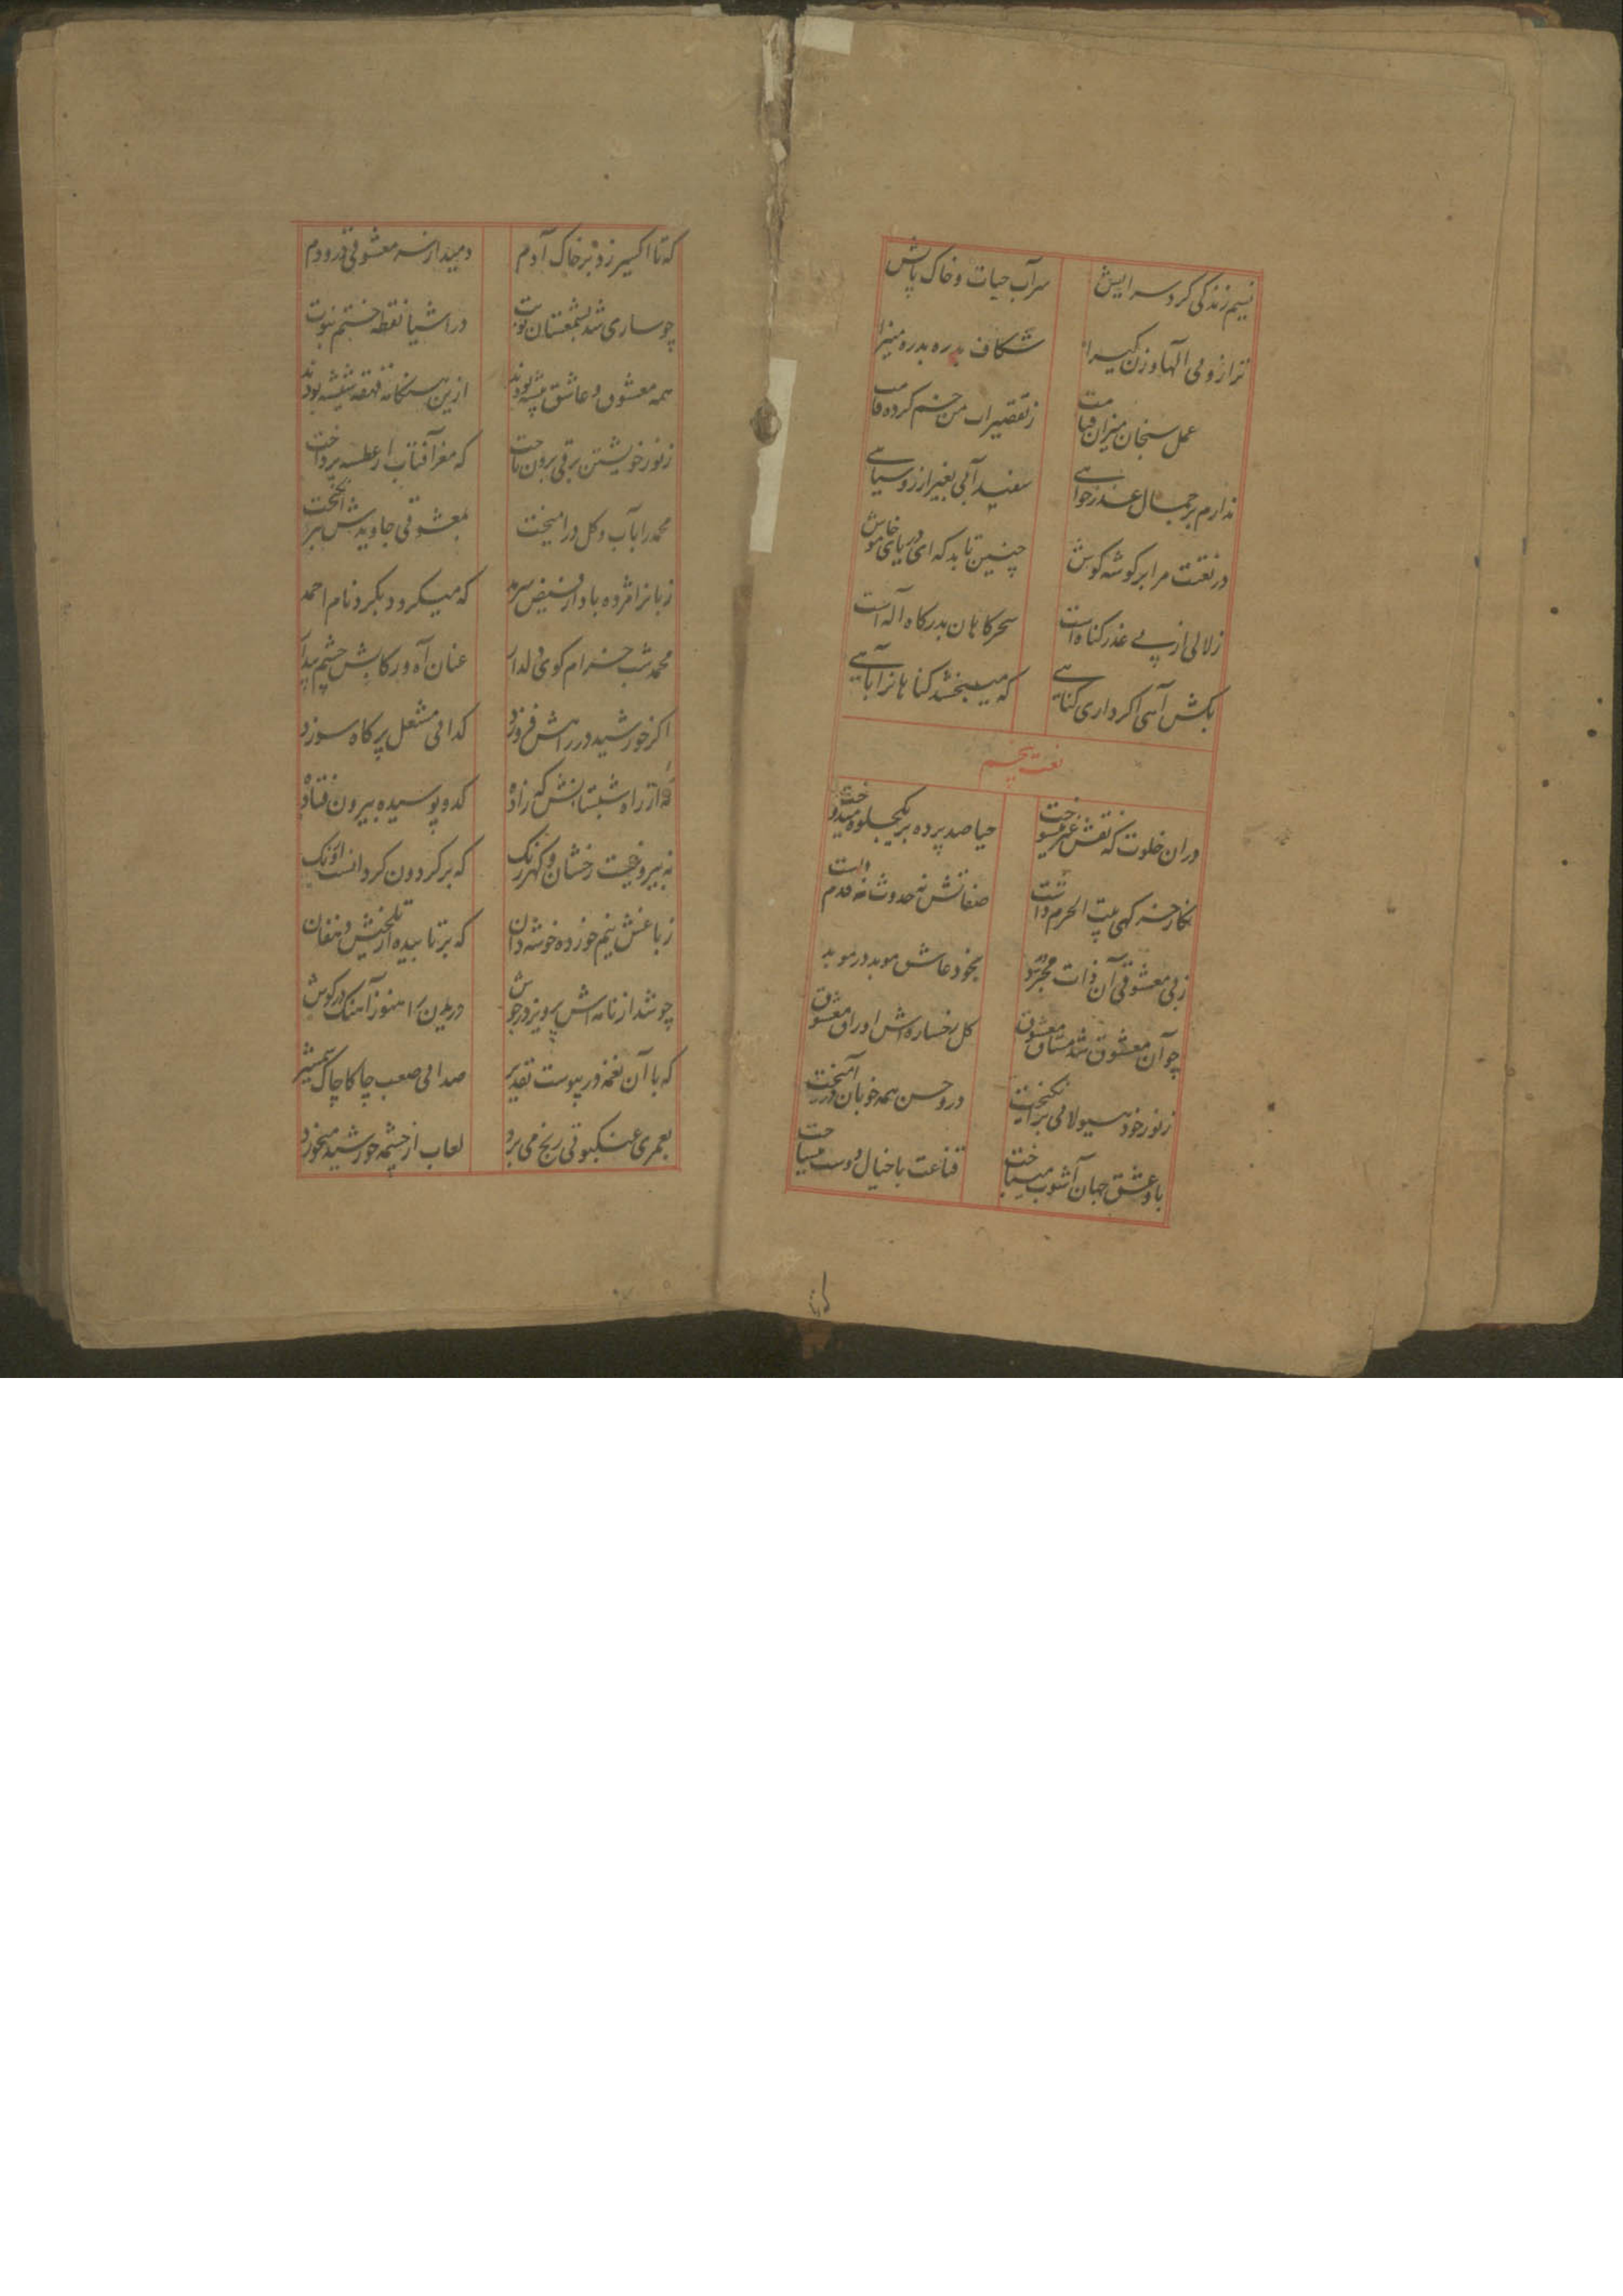 نسیم زندگی کرد سرایش سرآب حیات و خاک پایش
ترازوی الها وزن شکاف بدره بدره
عمل سنجان میزان قیامت ز تقصیرات من خم کرده قامت
ندارم بر جمال عذرخواهی سفید آبی بغیر از روسیاهی
در نعتت مرا بر گوشه گوش چنین تابد که ای دریای خاموش
زلالی از پی عذر گناه است سحرگاهان بدرگاه آله است
بکش آهی اگر داری گناهی که میبخشد گناهانرا بآهی
نعت پنجم
دران خلوت که نقش غیر میسوخت حیا صد پرده بر یکجلوه میدوخت
نگارخرگهی بیت الحرم داشت صفاتش نه حدوث نه قدم داشت
ز بی معشوقی آن ذات مجرد بخود عاشق موبد در موبد
چو آن معشوق شد مشتاق معشوق گل رخساره اش اوراق معشوق
ز نور خود هیولائی برانگیخت درو حسن همه خوبان درآمیخت
با و عشق جهان آشوب میباخت قناعت با خیال دوست میساخت
که تا اکسیر زد بر خاک آدم دمید از نه معشوقی درو دم
چو ساری شد بشمعستان در اشیا نقطه ختم نبوت
همه معشوق و عاشق پیشه بودند ازین هنگامه قهقه شیشه بودند
ز نور خویشتن برقی برون تاخت که مغز آفتاب از عطسه پرداخت
محمد را بآب و گل درآمیخت بمعشوقی جاویدش برانگیخت
زبانرا مژده باد از فیض سرمد که میگردد بگرد نام احمد
محمد شب خرام کوی دلدار عنان آه و رکابش چشم بیدار
اگر خورشید در راهش فروزد گدائی مشعل پر کاه سوزد
از راه شبستانش که زاده کدو پوسیده بیرون فتاده
نه پیروجست رخشان و گهررنگ که بر گردون گردانست اونگ
ز باغش نیم خورده خوشه دان که برتابیده از تلخیش دهقان
چو شد از نامه اش پرویز در جوش درید این را هنوز آهنگ در گوش
که با آن نغمه در پیوست تقدیر صدائی صعب چاکاچاک شمشیر
بعمری عنکبوتی رنج می برد لعاب از چشمه خورشید میخورد